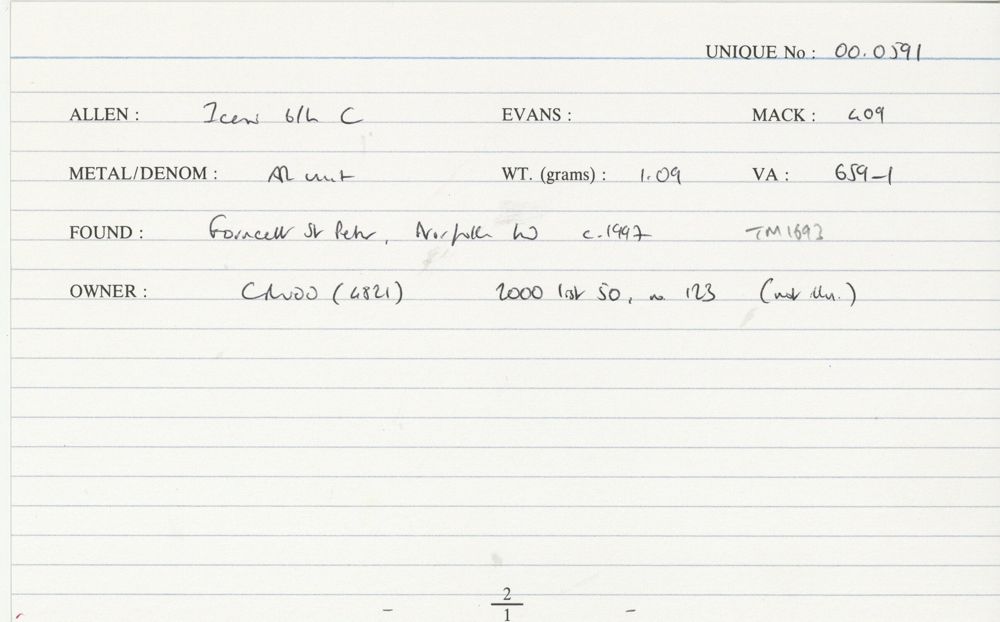 UNIQUE No : 00.0591
ALLEN : Iceni b/h C EVANS : MACK : 409
METAL/DENOM : AR unit WT. (grams) : 1.09 VA : 659-1
FOUND : Forncett St Peter, Norfolk c.1997 TM1693
OWNER : (4821) 2000 list 50, no 123 (not illu.)
2
1